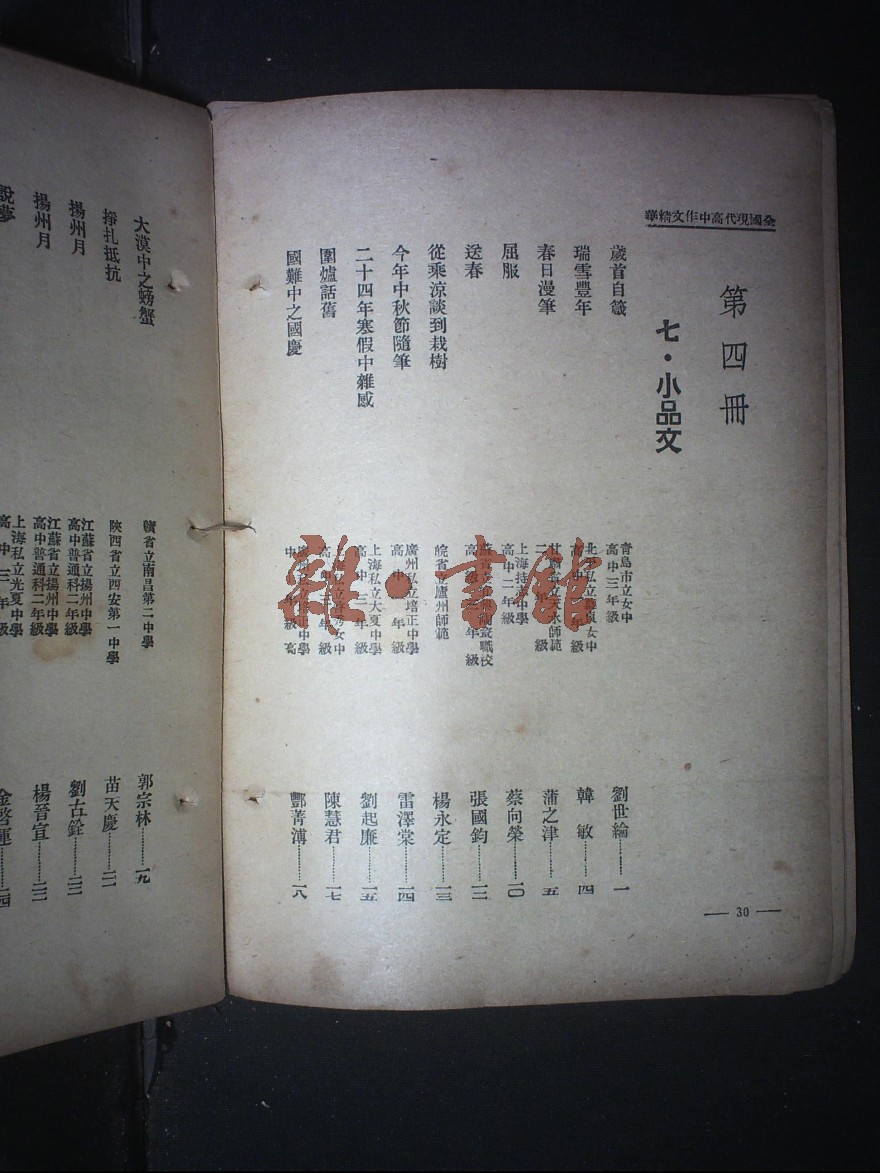 全國現代高中作文精華
第四冊
七·小品文
歲首自箴
青島市立女中
高中三年級
劉世綸………一
瑞雪豐年
韓敏………四
春日漫筆
蒲之津………五
屈服
上海持志中學
高中二年級
蔡向榮………一〇
送春
張國鈞………一二
從乘涼談到栽樹
皖省立廬州師範
楊永定………一三
今年中秋節隨筆
廣州私立培正中學
雷澤棠………一四
二十四年寒假中雜感
上海私立大夏中學
劉起廉………一五
圍爐話舊
陳慧君………一七
國難中之國慶
酈菁溥………一八
— 30 —
大漠中之螃蟹
贛省立南昌第二中學
郭宗林………一九
掙扎抵抗
陝西省立西安第一中學
苗天慶………二一
揚州月
江蘇省立揚州中學
高中普通科二年級
劉古銓………二二
揚州月
江蘇省立揚州中學
高中普通科二年級
楊晉宣………二三
說夢
上海私立光夏中學
高中三年級
雜·書館